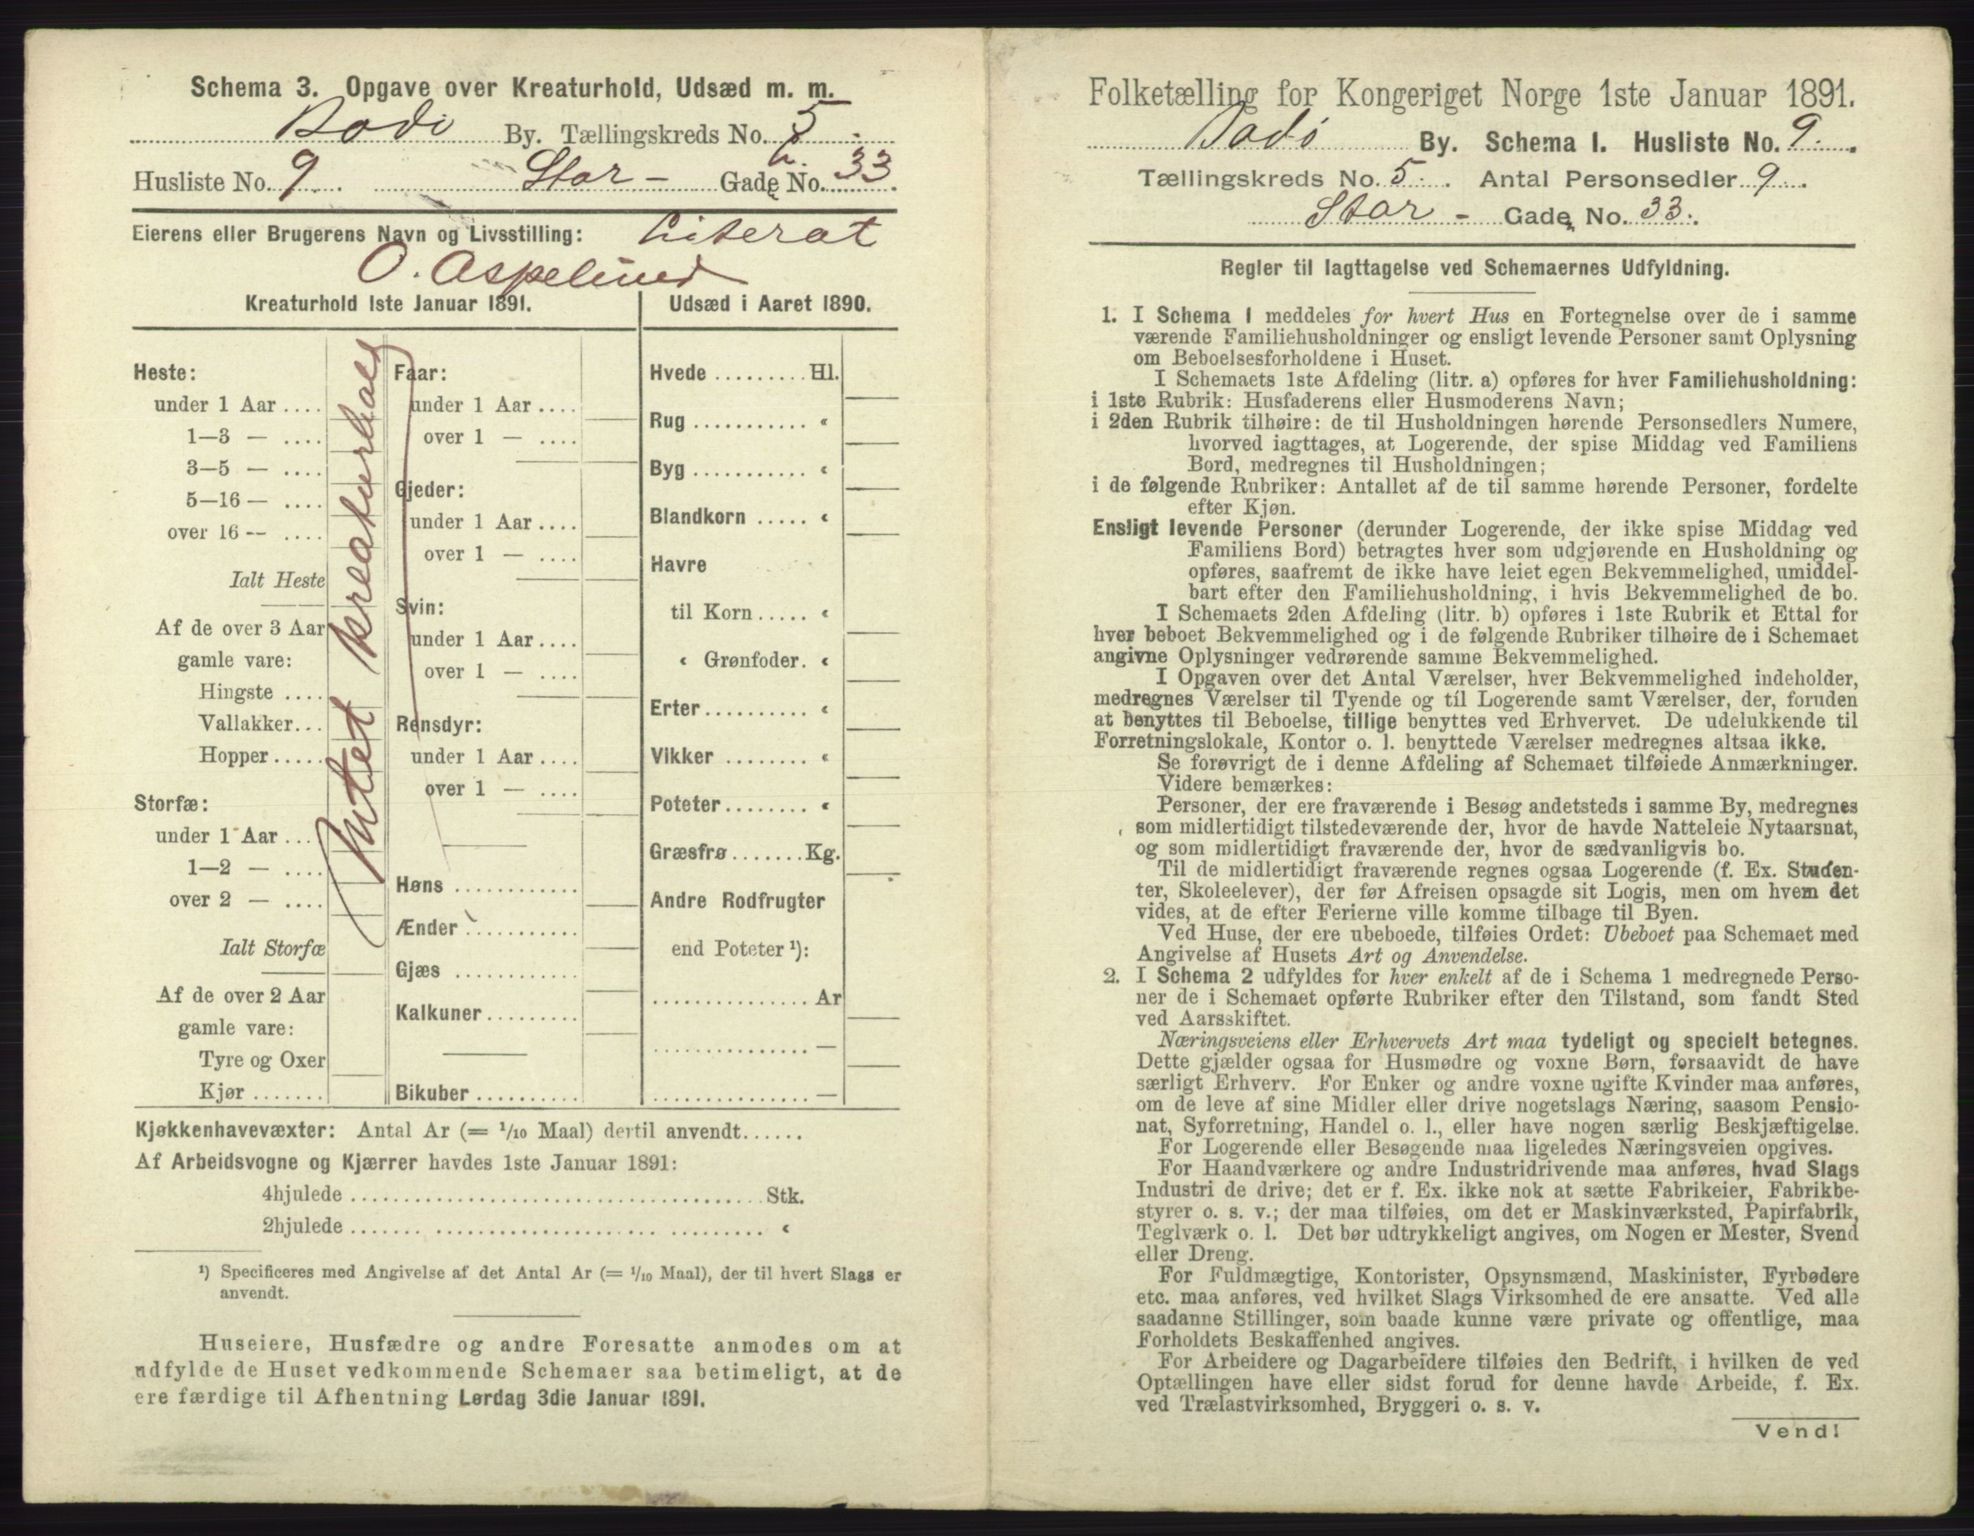 Schema 3. Opgave over Kreaturhold, Udsæd m. m.
Bodø By. Tællingskreds No. 5.
Husliste No. 9 Stor- Gade No. 33.
Eierens eller Brugerens Navn og Livsstilling: Literat
O. Aspelund
Kreaturhold 1ste Januar 1891.
Heste:
under 1 Aar ....
1—3 — ....
3—5 — ....
5—16 — ....
over 16 — ....
Ialt Heste
Af de over 3 Aar
gamle vare:
Hingste ....
Vallakker...
Hopper.....
Storfæ:
under 1 Aar ...
1—2 — ....
over 2 — ....
Ialt Storfæ
Af de over 2 Aar
gamle vare:
Tyre og Oxer
Kjør .......
Intet Kreaturhold
Faar:
under 1 Aar ....
over 1 — ....
Gjeder:
under 1 Aar ....
over 1 — ....
Svin:
under 1 Aar ....
over 1 — ....
Rensdyr:
under 1 Aar ....
over 1 — ....
Høns ...........
Ænder ...........
Gjæs ...........
Kalkuner.........
Bikuber ..........
Udsæd i Aaret 1890.
Hvede ......... Hl.
Rug ........... "
Byg ........... "
Blandkorn ..... "
Havre
til Korn ..... "
" Grønfoder. "
Erter.......... "
Vikker ........ "
Poteter ........ "
Græsfrø ....... Kg.
Andre Rodfrugter
end Poteter ¹):
............... Ar
............... —
............... —
Kjøkkenhavevæxter: Antal Ar (= 1/10 Maal) dertil anvendt......
Af Arbeidsvogne og Kjærrer havdes 1ste Januar 1891:
4hjulede .................................... Stk.
2hjulede .................................... "
¹) Specificeres med Angivelse af det Antal Ar (= 1/10 Maal), der til hvert Slags er
anvendt.
Huseiere, Husfædre og andre Foresatte anmodes om at
udfylde de Huset vedkommende Schemaer saa betimeligt, at de
ere færdige til Afhentning Lørdag 3die Januar 1891.
Folketælling for Kongeriget Norge 1ste Januar 1891.
Bodø By. Schema I. Husliste No. 9.
Tællingskreds No. 5. Antal Personsedler 9.
Stor- Gade No. 33.
Regler til Iagttagelse ved Schemaernes Udfyldning.
1. I Schema 1 meddeles for hvert Hus en Fortegnelse over de i samme
værende Familiehusholdninger og ensligt levende Personer samt Oplysning
om Beboelsesforholdene i Huset.
I Schemaets 1ste Afdeling (litr. a) opføres for hver Familiehusholdning:
i 1ste Rubrik: Husfaderens eller Husmoderens Navn;
i 2den Rubrik tilhøire: de til Husholdningen hørende Personsedlers Numere,
hvorved iagttages, at Logerende, der spise Middag ved Familiens
Bord, medregnes til Husholdningen;
i de følgende Rubriker: Antallet af de til samme hørende Personer, fordelte
efter Kjøn.
Ensligt levende Personer (derunder Logerende, der ikke spise Middag ved
Familiens Bord) betragtes hver som udgjørende en Husholdning og
opføres, saafremt de ikke have leiet egen Bekvemmelighed, umiddel-
bart efter den Familiehusholdning, i hvis Bekvemmelighed de bo.
I Schemaets 2den Afdeling (litr. b) opføres i 1ste Rubrik et Ettal for
hver beboet Bekvemmelighed og i de følgende Rubriker tilhøire de i Schemaet
angivne Oplysninger vedrørende samme Bekvemmelighed.
I Opgaven over det Antal Værelser, hver Bekvemmelighed indeholder,
medregnes Værelser til Tyende og til Logerende samt Værelser, der, foruden
at benyttes til Beboelse, tillige benyttes ved Erhvervet. De udelukkende til
Forretningslokale, Kontor o. l. benyttede Værelser medregnes altsaa ikke.
Se forøvrigt de i denne Afdeling af Schemaet tilføiede Anmærkninger.
Videre bemærkes:
Personer, der ere fraværende i Besøg andetsteds i samme By, medregnes
som midlertidigt tilstedeværende der, hvor de havde Natteleie Nytaarsnat,
og som midlertidigt fraværende der, hvor de sædvanligvis bo.
Til de midlertidigt fraværende regnes ogsaa Logerende (f. Ex. Studen-
ter, Skoleelever), der før Afreisen opsagde sit Logis, men om hvem det
vides, at de efter Ferierne ville komme tilbage til Byen.
Ved Huse, der ere ubeboede, tilføies Ordet: Ubeboet paa Schemaet med
Angivelse af Husets Art og Anvendelse.
2. I Schema 2 udfyldes for hver enkelt af de i Schema 1 medregnede Perso-
ner de i Schemaet opførte Rubriker efter den Tilstand, som fandt Sted
ved Aarsskiftet.
Næringsveiens eller Erhvervets Art maa tydeligt og specielt betegnes.
Dette gjælder ogsaa for Husmødre og voxne Børn, forsaavidt de have
særligt Erhverv. For Enker og andre voxne ugifte Kvinder maa anføres,
om de leve af sine Midler eller drive nogetslags Næring, saasom Pensio-
nat, Syforretning, Handel o. l., eller have nogen særlig Beskjæftigelse.
For Logerende eller Besøgende maa ligeledes Næringsveien opgives.
For Haandværkere og andre Industridrivende maa anføres, hvad Slags
Industri de drive; det er f. Ex. ikke nok at sætte Fabrikeier, Fabrikbe-
styrer o. s. v.; der maa tilføies, om det er Maskinværksted, Papirfabrik,
Teglværk o. l. Det bør udtrykkeligt angives, om Nogen er Mester, Svend
eller Dreng.
For Fuldmægtige, Kontorister, Opsynsmænd, Maskinister, Fyrbødere
etc. maa anføres, ved hvilket Slags Virksomhed de ere ansatte. Ved alle
saadanne Stillinger, som baade kunne være private og offentlige, maa
Forholdets Beskaffenhed angives.
For Arbeidere og Dagarbeidere tilføies den Bedrift, i hvilken de ved
Optællingen have eller sidst forud for denne havde Arbeide, f. Ex.
ved Trælastvirksomhed, Bryggeri o. s. v.
Vend!